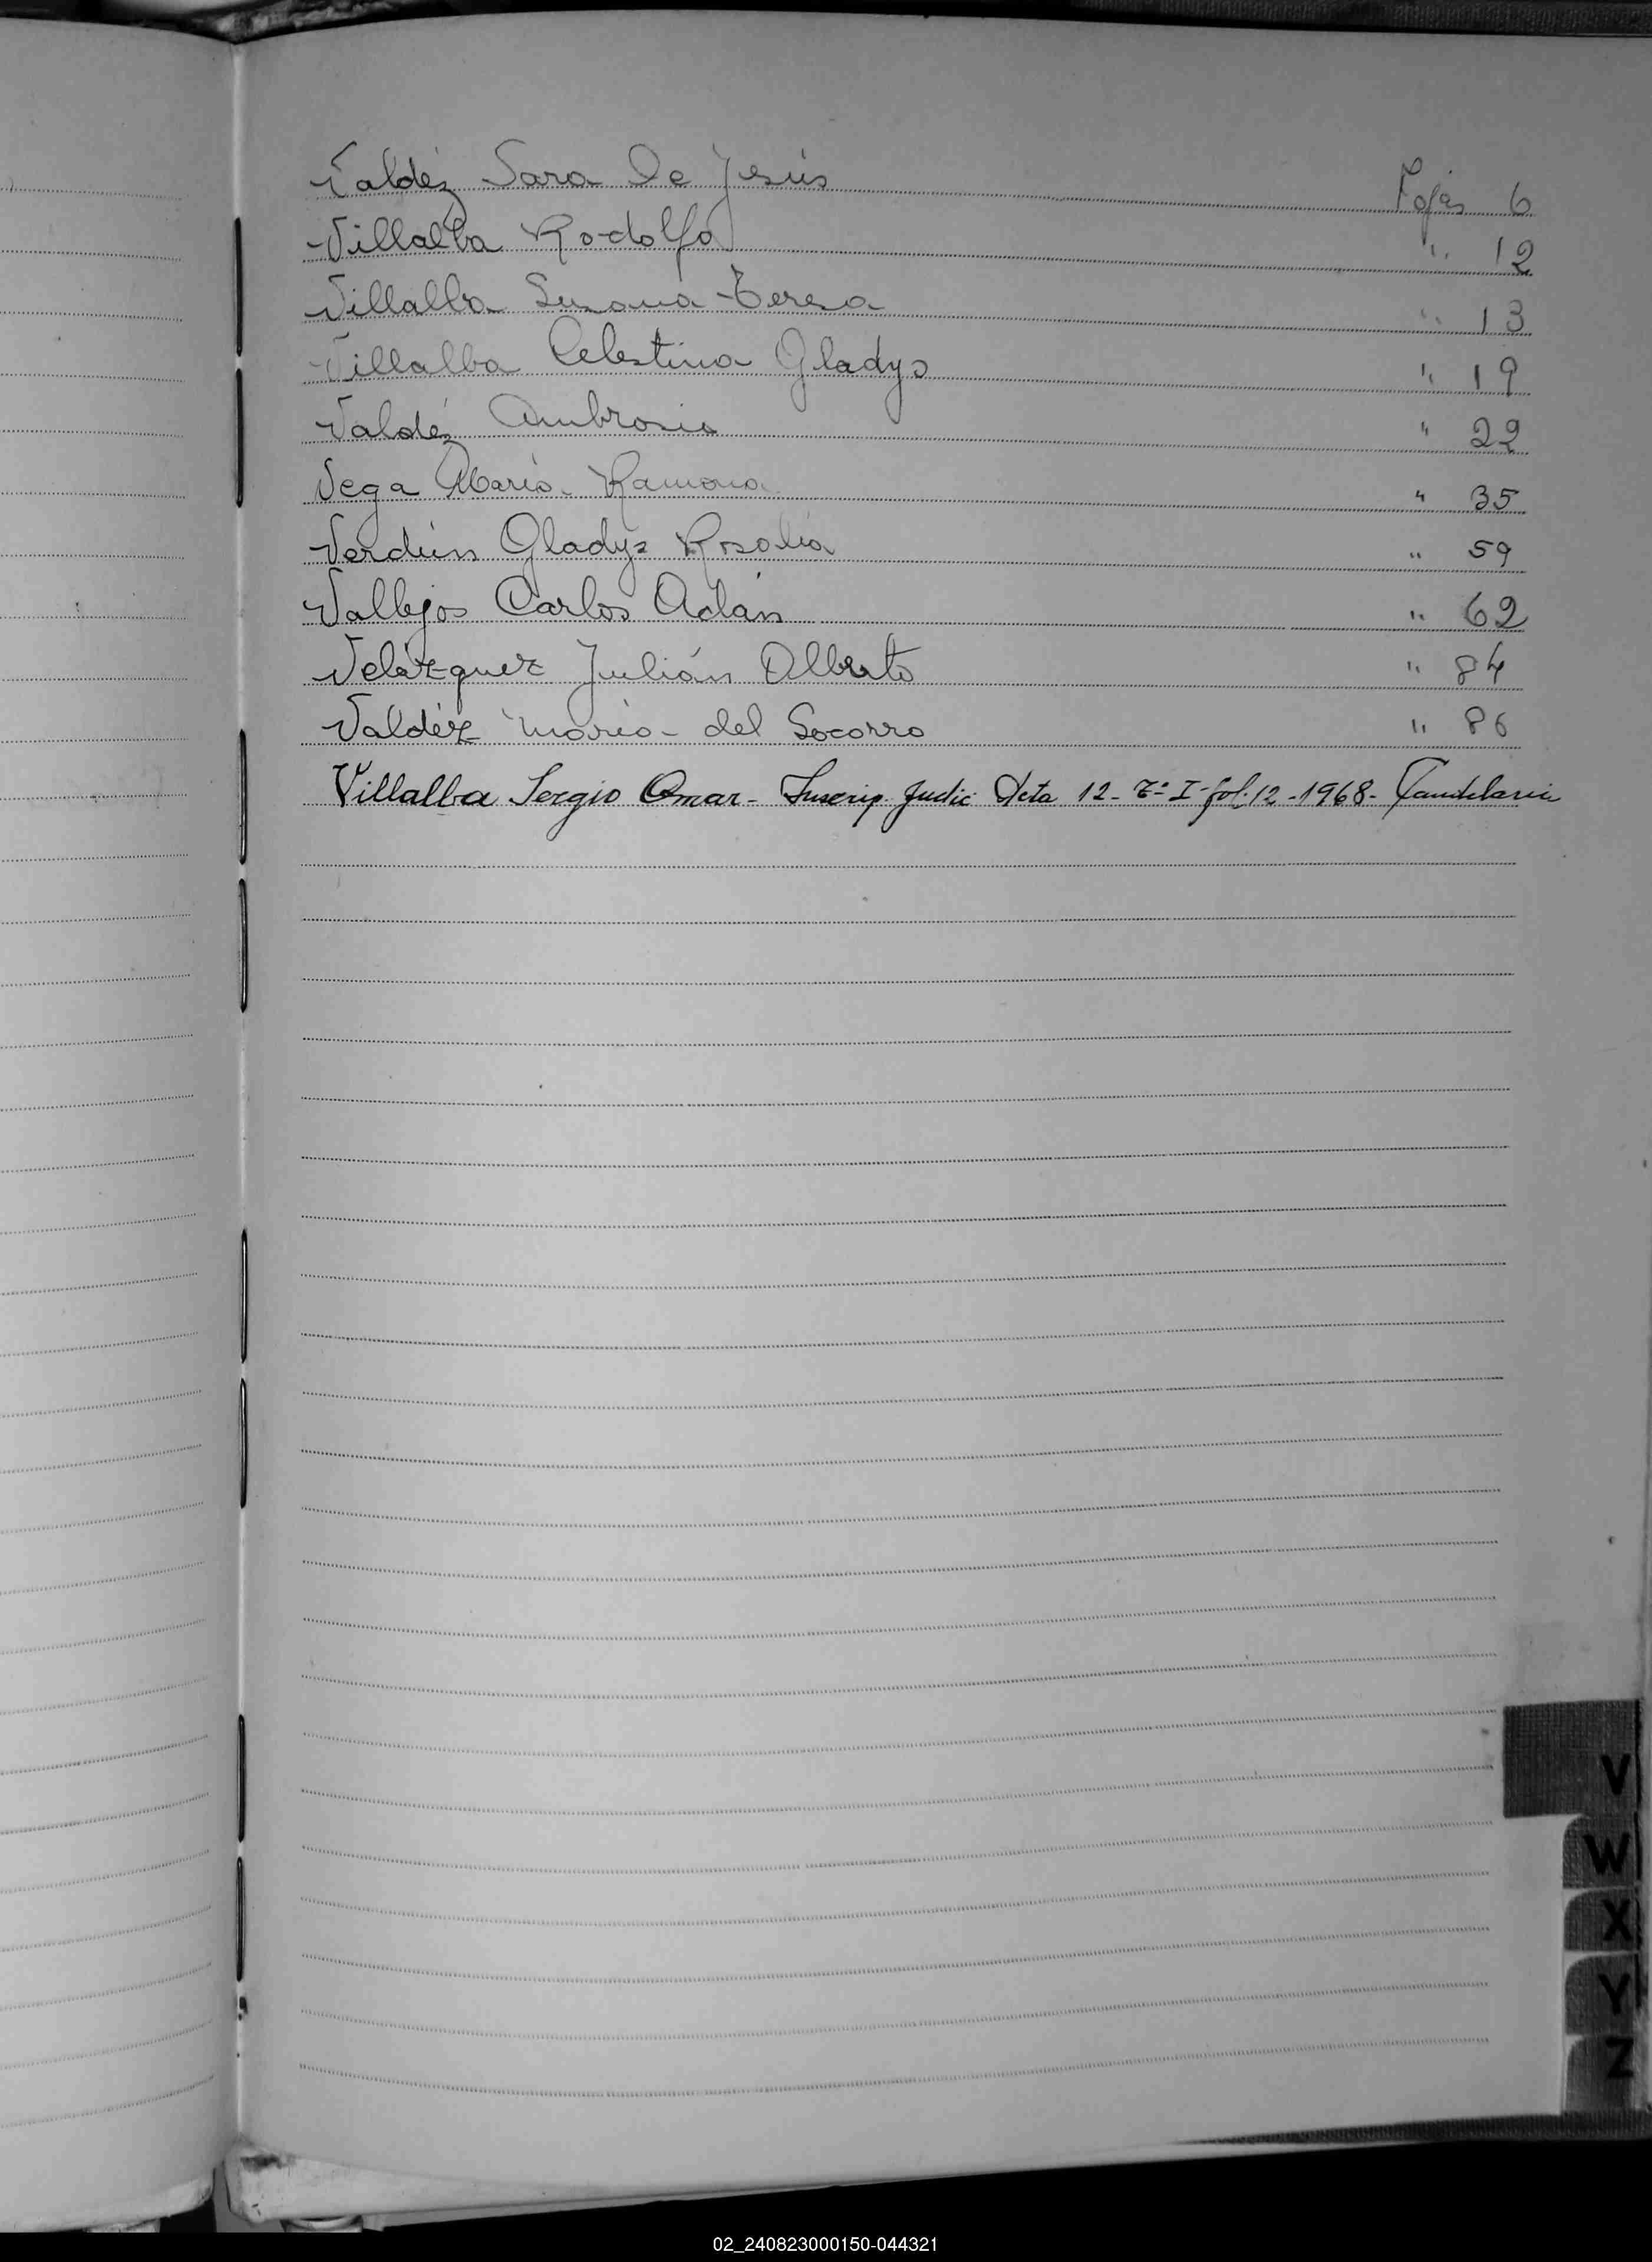 Valdéz Sara De Jesús Fojas 6
Villalba Rodolfo " 12
Villalba Susana Teresa " 13
Villalba Celestina Gladys " 19
Valdéz Ambrosio " 22
Vega María Ramona " 35
Verdún Gladys Rosalía " 59
Vallejos Carlos Adán " 62
Velázquez Julián Alberto " 84
Valdéz María del Socorro " 86
Villalba Sergio Omar - Inscrip. Judic Acta 12 - Tº I - fol. 12 - 1968 - Candelaria
V
W
X
Y
Z
02_240823000150-044321